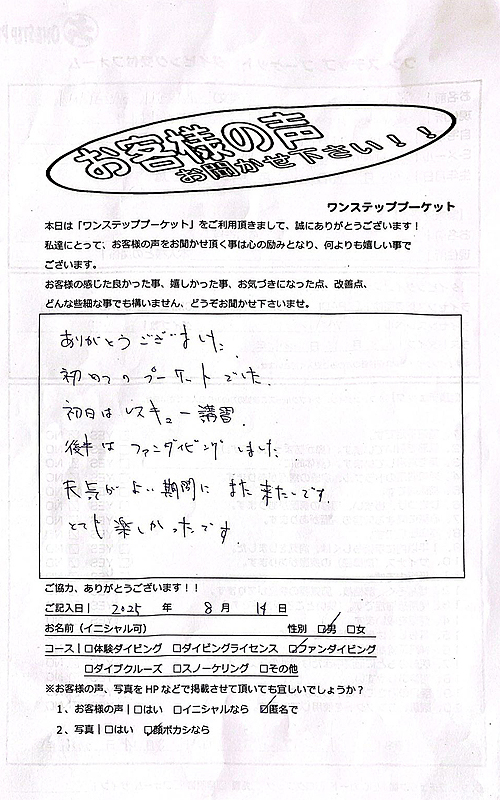 お客様の声
お聞かせ下さい！！
ワンステッププーケット
本日は「ワンステッププーケット」をご利用頂きまして、誠にありがとうございます！
私達にとって、お客様の声をお聞かせ頂く事は心の励みとなり、何よりも嬉しい事で
ございます。
お客様の感じた良かった事、嬉しかった事、お気づきになった点、改善点、
どんな些細な事でも構いません、どうぞお聞かせ下さいませ。
ありがとうございました。
初めてのプーケットでした。
初日はレスキュー講習。
後半はファンダイビングしました。
天気がよい期間にまた来たいです。
とても楽しかったです。
ご協力、ありがとうございます！！
ご記入日 | 2025 年 8月 14日
お名前（イニシャル可） 性別 ☑男 □女
コース | □体験ダイビング □ダイビングライセンス ☑ファンダイビング
□ダイブクルーズ □スノーケリング □その他
※お客様の声、写真をHPなどで掲載させて頂いても宜しいでしょうか？
1、お客様の声 | □はい □イニシャルなら ☑匿名で
2、写真 | □はい ☑顔ボカシなら